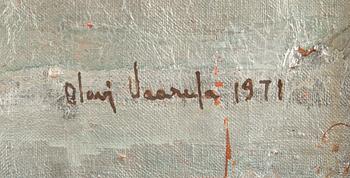 Olavi Vaarula 1971